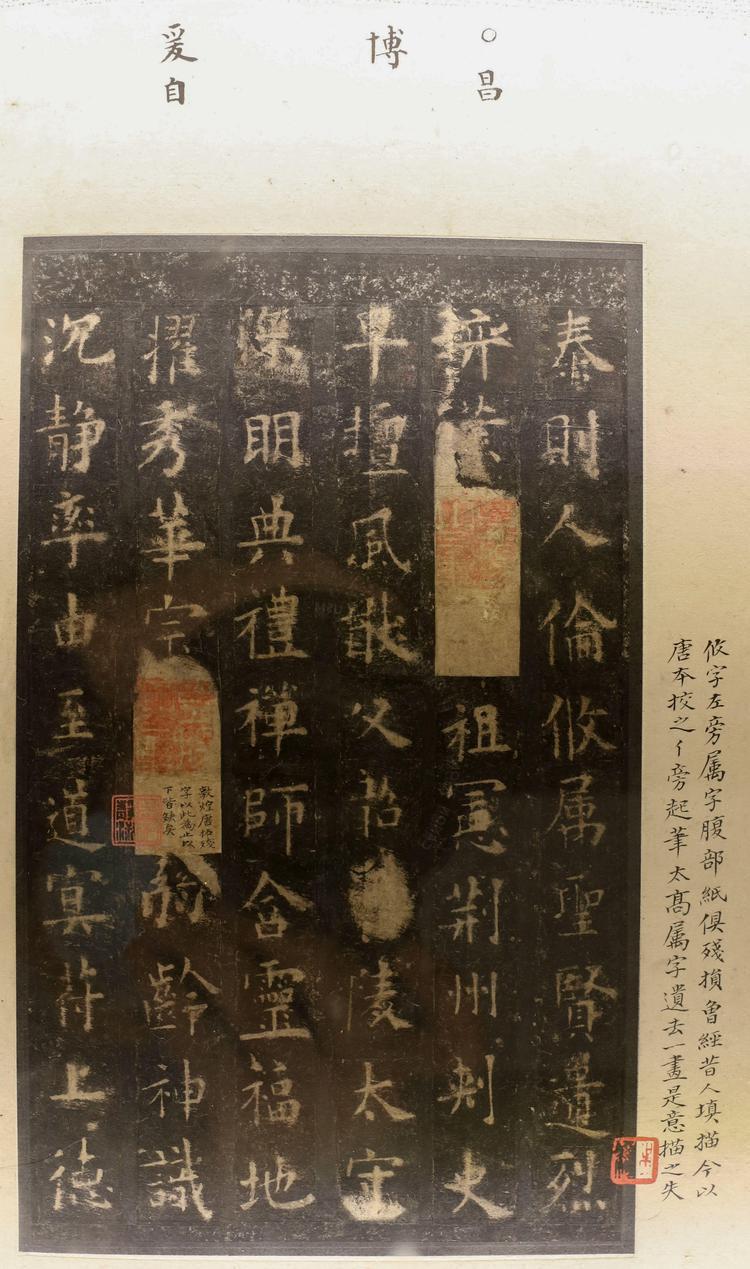 ○昌
博
爰自
攸字左旁属字腹部紙俱殘損曾經昔人填描今以
唐本挍之亻旁起筆太高属字遺去一畫是意描之失
泰則人倫攸属聖賢遺烈
業祖憲荊州刺史
早擅風猷父韶陵太守
深明典禮禪師含靈福地
擢秀華宗弱齡神識
敦煌唐拓殘
字以此為止以
下皆缺矣
沉靜率由至道冥符上德